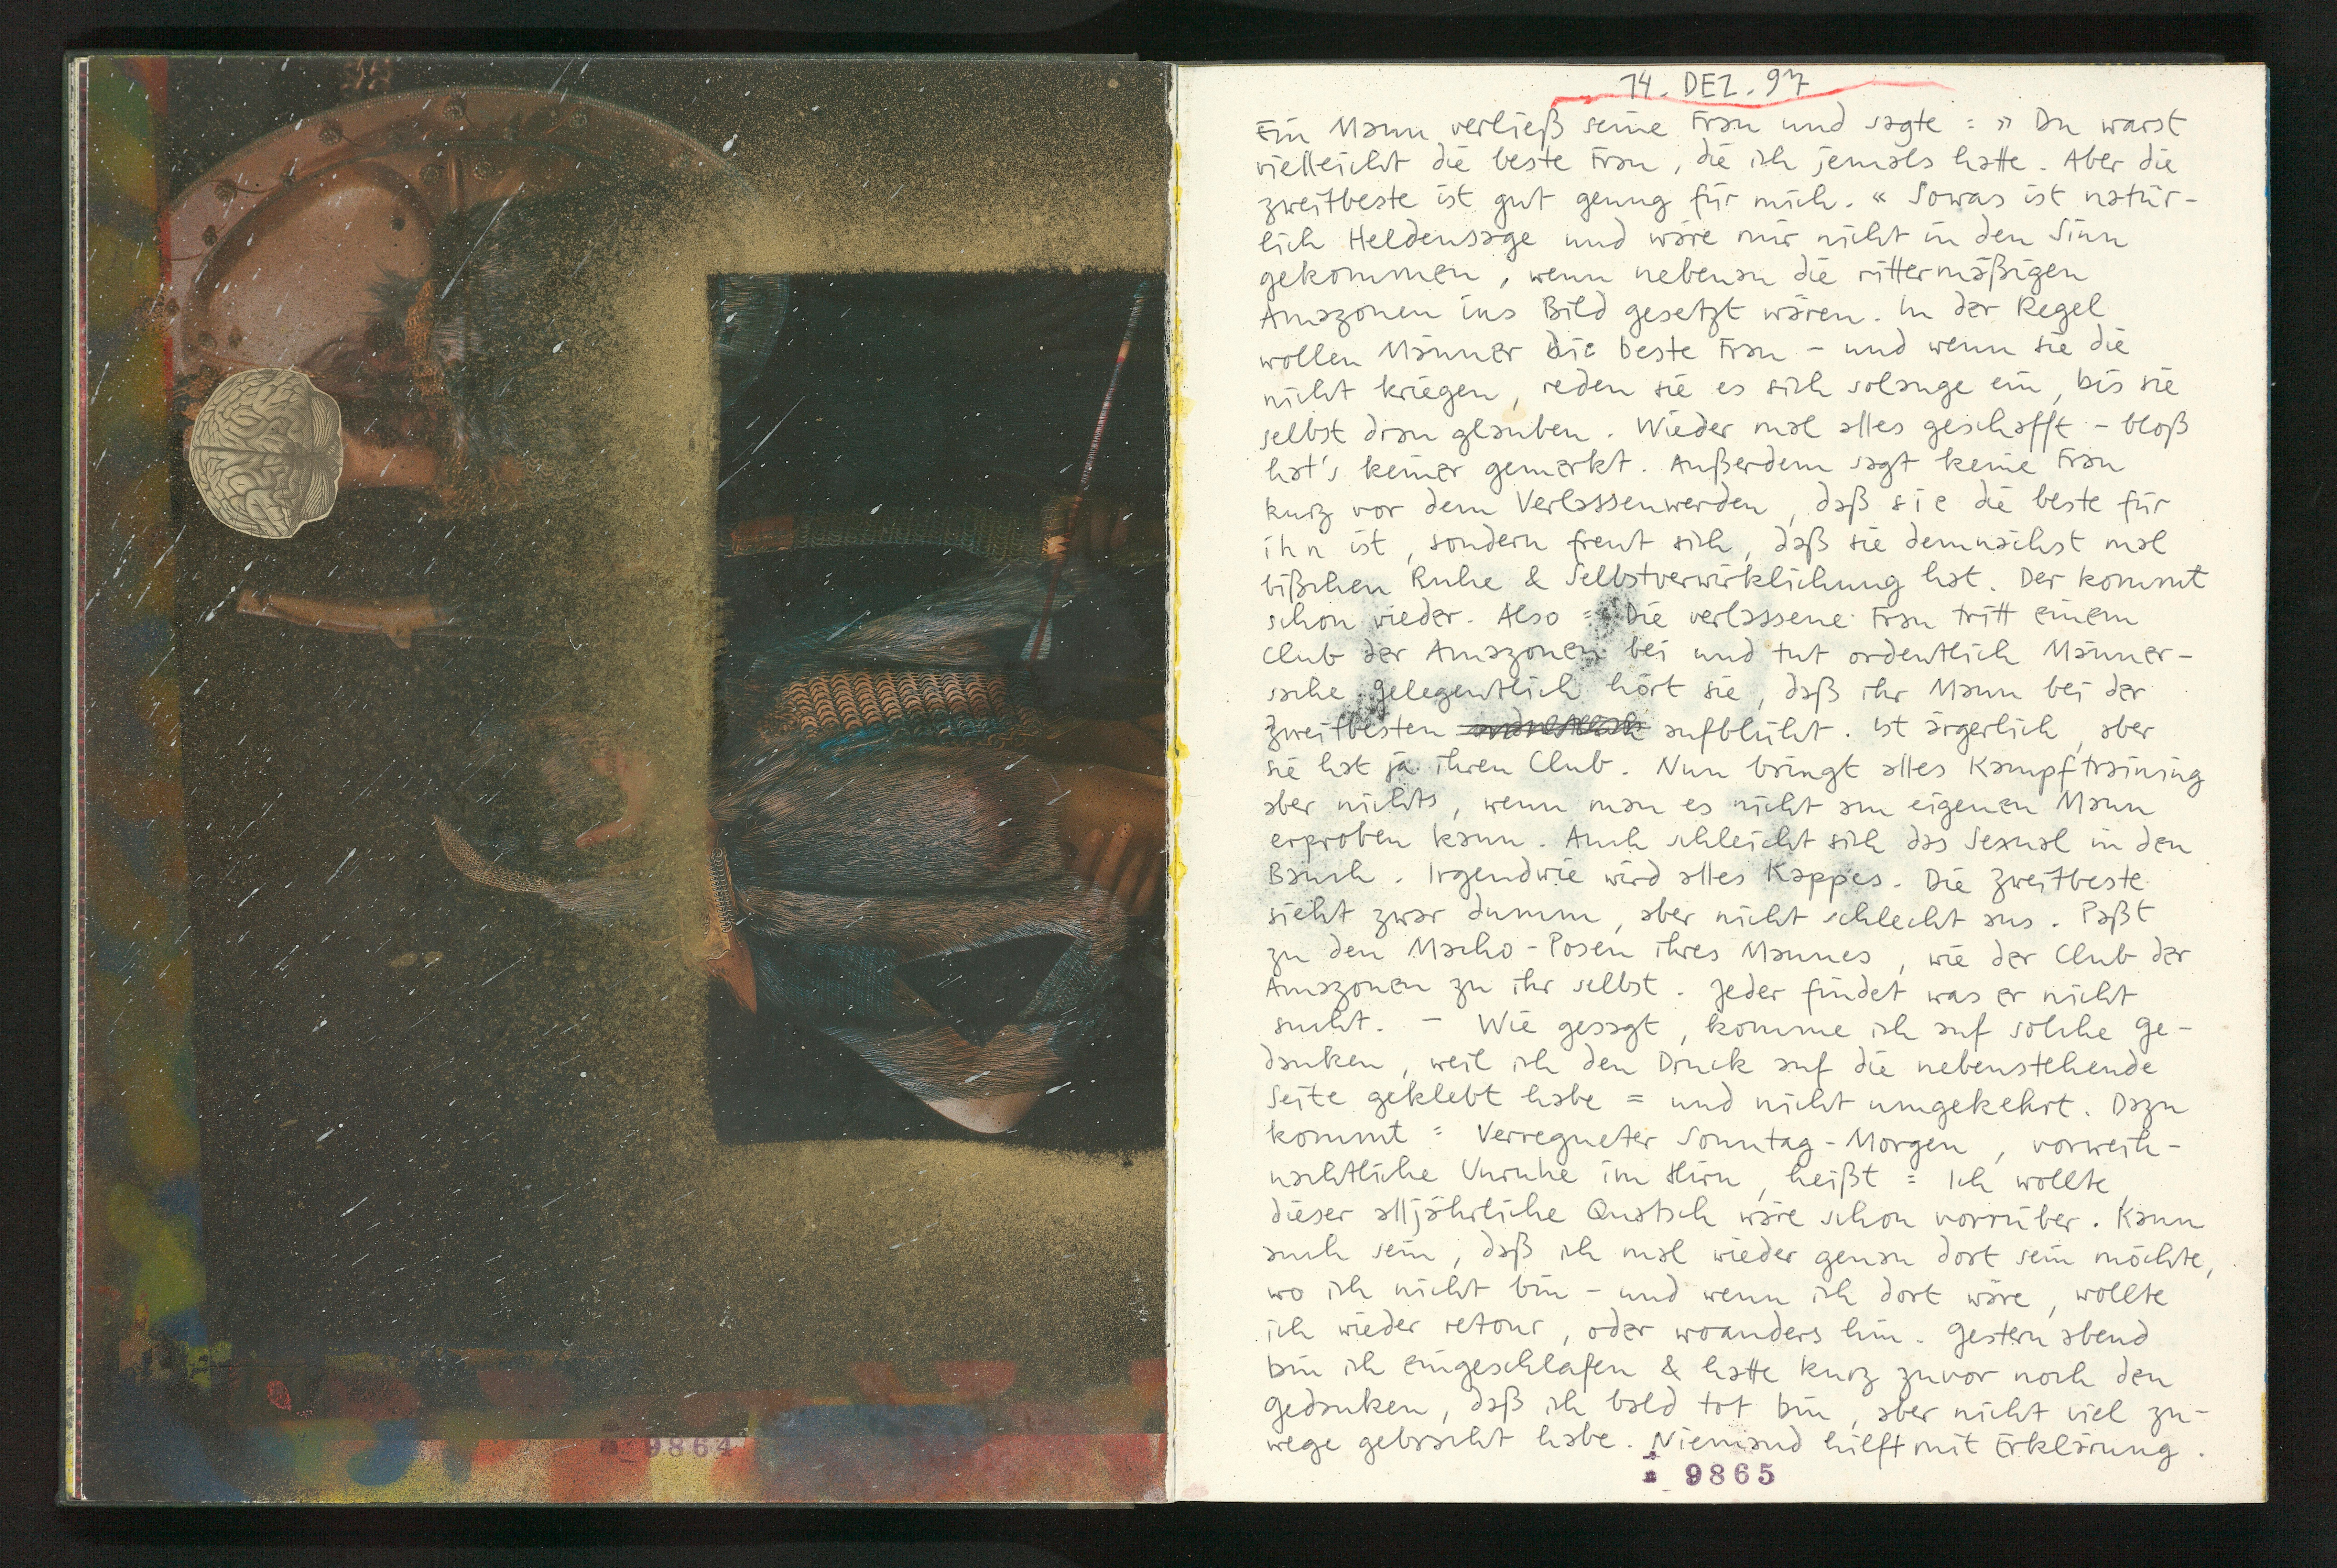 9864
14. DEZ. 97
Ein Mann verließ seine Frau und sagte : » Du warst
vielleicht die beste Frau, die ich jemals hatte. Aber die
zweitbeste ist gut genug für mich. « Sowas ist natür-
lich Heldensage und wäre mir nicht in den Sinn
gekommen, wenn nebenan die rittermäßigen
Amazonen ins Bild gesetzt wären. In der Regel
wollen Männer die beste Frau – und wenn sie die
nicht kriegen, reden sie es sich solange ein, bis sie
selbst dran glauben. Wieder mal alles geschafft – bloß
hat's keiner gemerkt. Außerdem sagt keine Frau
kurz vor dem Verlassenwerden, daß sie die beste für
ihn ist, sondern freut sich, daß sie demnächst mal
bißchen Ruhe & Selbstverwirklichung hat. Der kommt
schon wieder. Also : Die verlassene Frau tritt einem
Club der Amazonen bei und tut ordentlich Männer-
sache. Gelegentlich hört sie, daß ihr Mann bei der
zweitbesten aufblüht. Ist ärgerlich, aber
sie hat ja ihren Club. Nun bringt alles Kampftraining
aber nichts, wenn man es nicht am eigenen Mann
erproben kann. Auch schleicht sich das Sexual in den
Bauch. Irgendwie wird alles Kappes. Die zweitbeste
sieht zwar dumm, aber nicht schlecht aus. Paßt
zu den Macho-Posen ihres Mannes, wie der Club der
Amazonen zu ihr selbst. Jeder findet was er nicht
sucht. – Wie gesagt, komme ich auf solche Ge-
danken, weil ich den Druck auf die nebenstehende
Seite geklebt habe = und nicht umgekehrt. Dazu
kommt : Verregneter Sonntag-Morgen, vorweih-
nachtliche Unruhe im Hirn, heißt : Ich wollte,
dieser alljährliche Quatsch wäre schon vorrüber. Kann
auch sein, daß ich mal wieder genau dort sein möchte,
wo ich nicht bin – und wenn ich dort wäre, wollte
ich wieder retour, oder woanders hin. Gestern abend
bin ich eingeschlafen & hatte kurz zuvor noch den
Gedanken, daß ich bald tot bin, aber nicht viel zu-
wege gebracht habe. Niemand hilft mit Erklärung.
9865